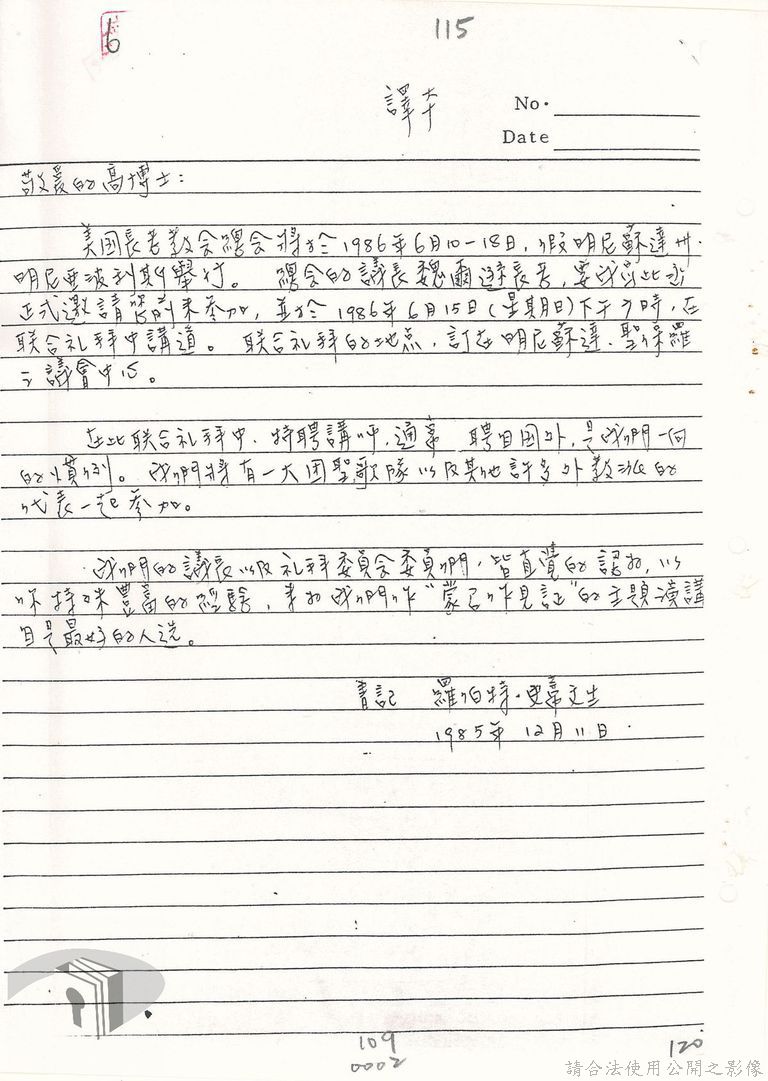 6
115
譯本
No.
Date
敬爱的高博士:
美国長老教会總会將於1986年6月10-18日,假明尼蘇達州.
明尼亞波利其中舉行。 總会的議長魏爾遜長老,要我寫此函
正式邀請你前來参加,並於1986年6月15日(星期日)下午7時,在
联合礼拜中講道。 联合礼拜的地点,訂在明尼蘇達.聖保羅
之議會中心。
在此联合礼拜中.特聘講師,通常 聘自国外,是我們一向
的慣例。我們將有一大团聖歌隊以及其他許多外教派的
代表一起参加。
我們的議長以及礼拜委員会委員們,皆直覺的認為,以
你特殊豐富的經驗,来為我們作"蒙召作見証"的主題演講
自是最好的人选。
書記 羅伯特.史蒂文生
1985年 12月11日.
109
0002
120
請合法使用公開之影像